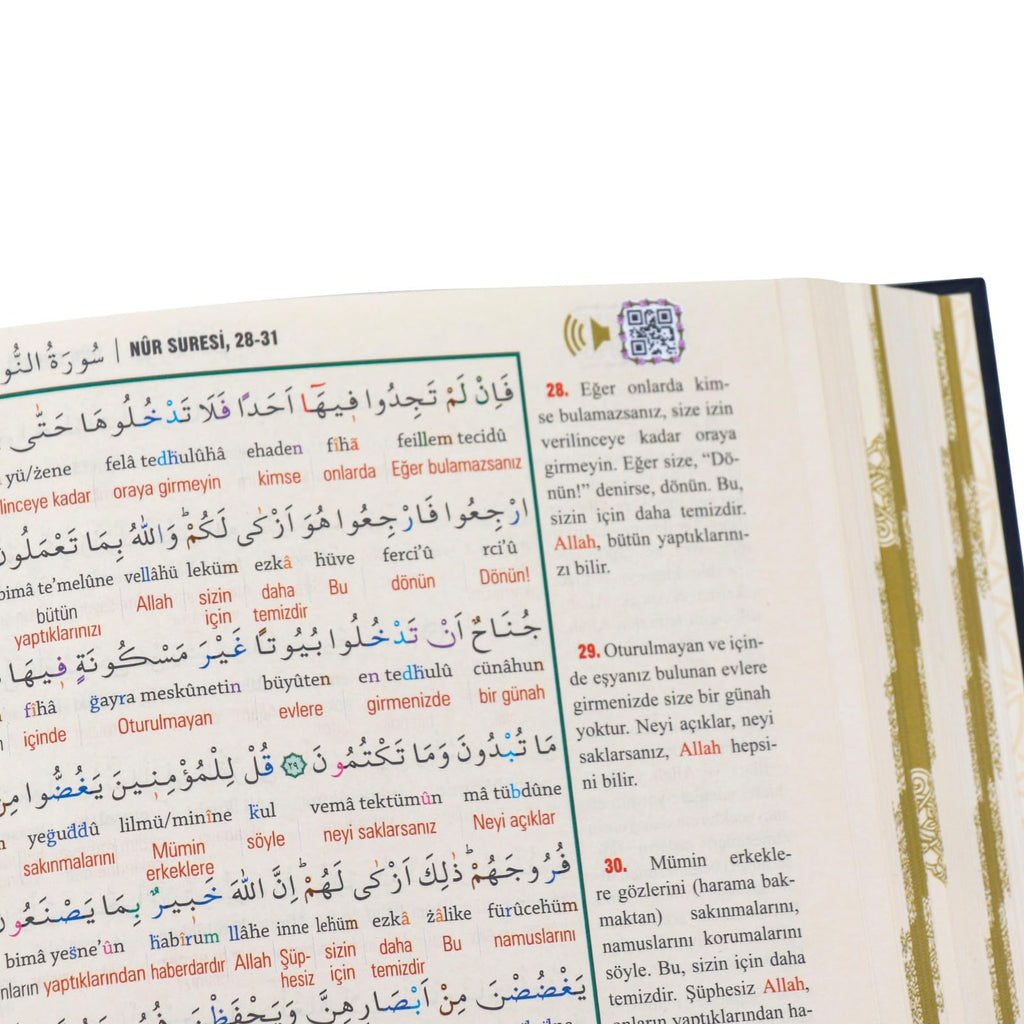 سُورَةُ النُّو | NÛR SURESİ, 28-31
فَاِنْ لَمْ تَجِدُوا فٖيهَٓا اَحَدًا فَلَا تَدْخُلُوهَا حَتّٰى
yü/żene felâ tedḣulûhâ ehaden fîhâ feillem tecidû
linceye kadar oraya girmeyin kimse onlarda Eğer bulamazsanız
ارْجِعُوا فَارْجِعُوا هُوَ اَزْكٰى لَكُمْ وَاللّٰهُ بِمَا تَعْمَلُونَ
bimâ te'melûne vellâhü leküm ezkâ hüve ferci'û rci'û
bütün yaptıklarınızı Allah sizin için daha temizdir Bu dönün Dönün!
جُنَاحٌ اَنْ تَدْخُلُوا بُيُوتًا غَيْرَ مَسْكُونَةٍ فٖيهَا
fîhâ ğayra meskûnetin büyûten en tedḣulû cünâhun
içinde Oturulmayan evlere girmenizde bir günah
مَا تُبْدُونَ وَمَا تَكْتُمُونَ ٢٩ قُلْ لِلْمُؤْمِنٖينَ يَغُضُّوا مِنْ
yeğuddû lilmü/minîne kul vemâ tektümûn mâ tübdûne
sakınmalarını Mümin erkeklere söyle neyi saklarsanız Neyi açıklar
فُرُوجَهُمْ ذٰلِكَ اَزْكٰى لَهُمْ اِنَّ اللّٰهَ خَبٖيرٌ بِمَا يَصْنَعُونَ
bimâ yesne'ûn ḣabîrum llâhe inne lehüm ezkâ żâlike fürûcehüm
nların yaptıklarından haberdardır Allah Şüp-hesiz sizin için daha temizdir Bu namuslarını
يَغْضُضْنَ مِنْ اَبْصَارِهِنَّ وَيَحْفَظْنَ
28. Eğer onlarda kim-
se bulamazsanız, size izin
verilinceye kadar oraya
girmeyin. Eğer size, “Dö-
nün!” denirse, dönün. Bu,
sizin için daha temizdir.
Allah, bütün yaptıklarını-
zı bilir.
29. Oturulmayan ve için-
de eşyanız bulunan evlere
girmenizde size bir günah
yoktur. Neyi açıklar, neyi
saklarsanız, Allah hepsi-
ni bilir.
30. Mümin erkekle-
re gözlerini (harama bak-
maktan) sakınmalarını,
namuslarını korumalarını
söyle. Bu, sizin için daha
temizdir. Şüphesiz Allah,
onların yaptıklarından ha-